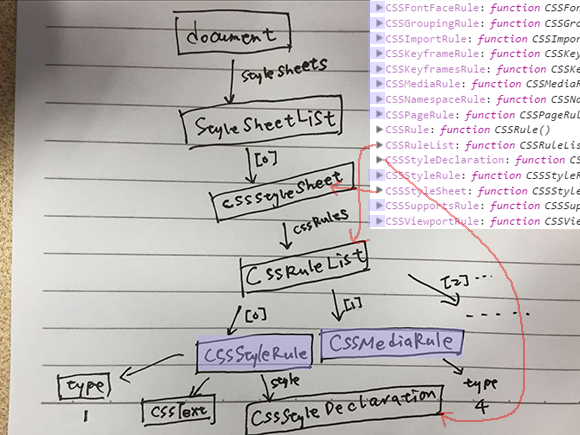 document
StyleSheets
StyleSheetList
[0]
cssStyleSheet
cssRules
CSSRuleList
[0]
[1]
[2] ...
CSSStyleRule
CSSMediaRule
type
1
cssText
style
CSSStyleDeclaration
type
4
CSSFontFaceRule: function CSSFon
CSSGroupingRule: function CSSGro
CSSImportRule: function CSSImpor
CSSKeyframeRule: function CSSKey
CSSKeyframesRule: function CSSKe
CSSMediaRule: function CSSMediaR
CSSNamespaceRule: function CSSNa
CSSPageRule: function CSSPageRul
CSSRule: function CSSRule()
CSSRuleList: function CSSRuleLis
CSSStyleDeclaration: function CS
CSSStyleRule: function CSSStyleR
CSSStyleSheet: function CSSStyle
CSSSupportsRule: function CSSSup
CSSViewportRule: function CSSVie